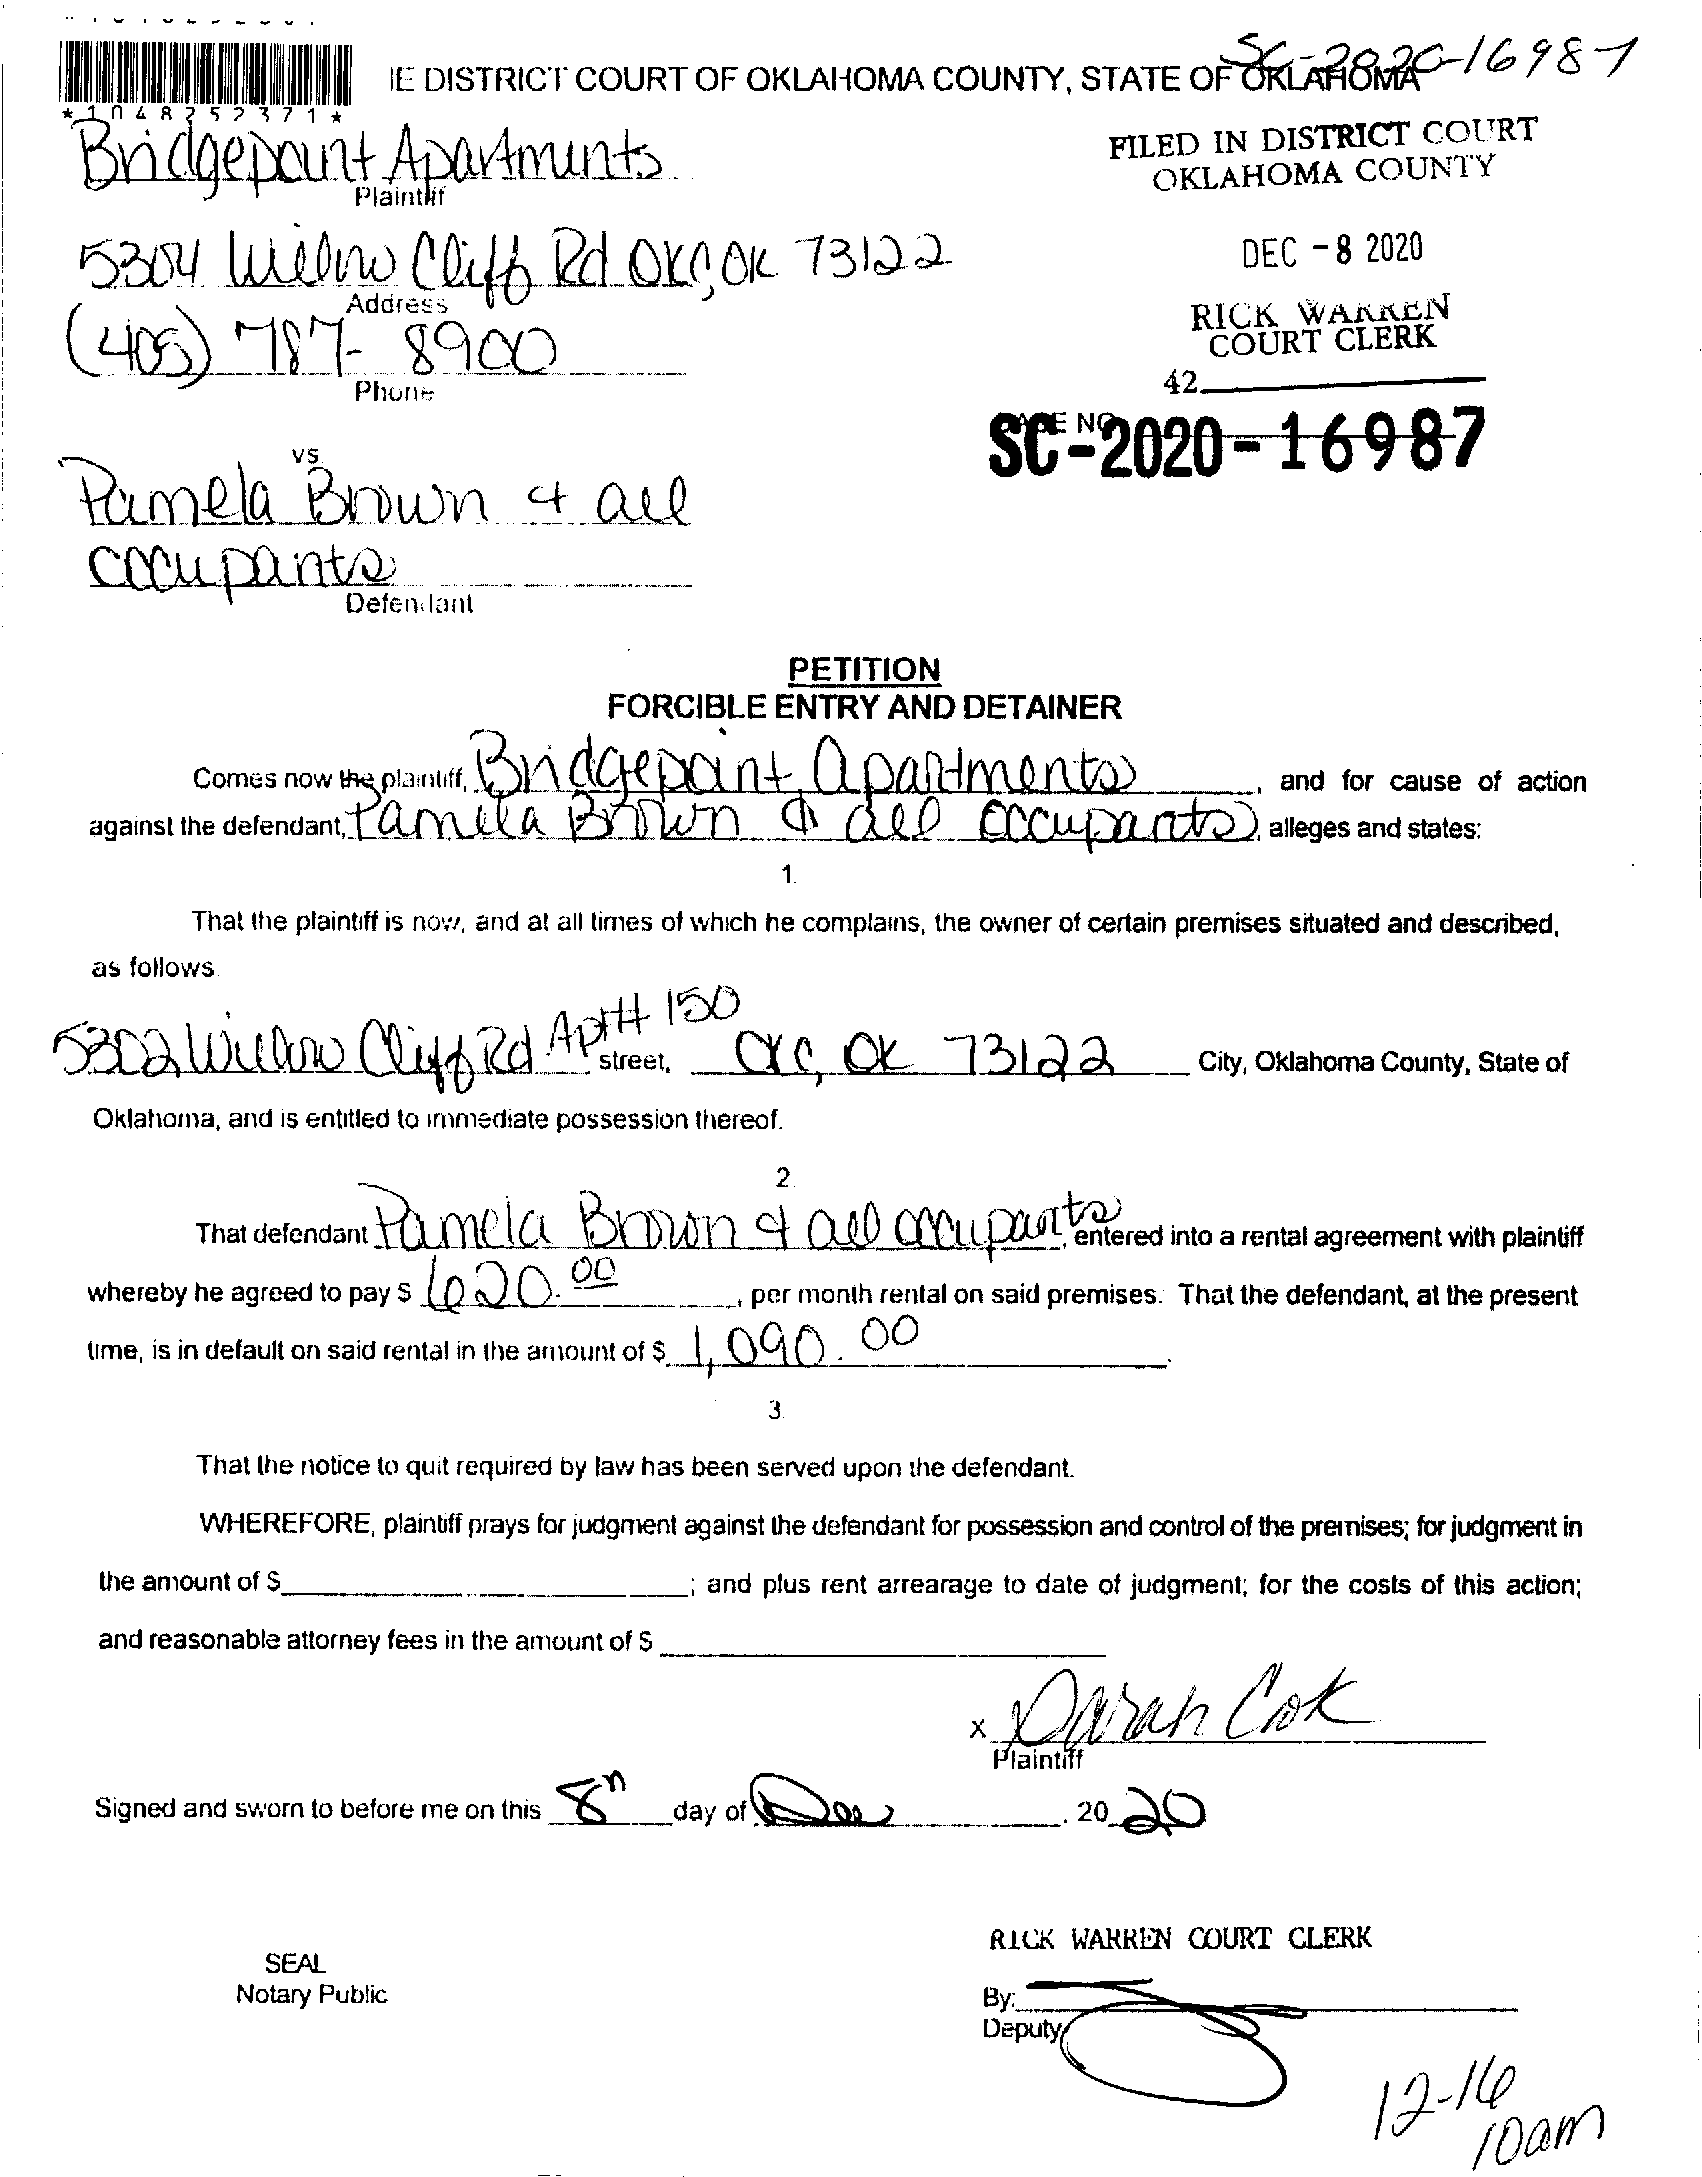 SC-2020-16987
IE DISTRICT COURT OF OKLAHOMA COUNTY, STATE OF OKLAHOMA
*1048252371*
FILED IN DISTRICT COURT
OKLAHOMA COUNTY
Bridgepoint Apartments
Plaintiff
5304 Willow Cliff Rd OKC, OK 73122
Address
DEC -8 2020
(405) 787-8900
Phone
RICK WARREN
COURT CLERK
42
CASE NO
SC-2020-16987
vs.
Pamela Brown & all
occupants
Defendant
PETITION
FORCIBLE ENTRY AND DETAINER
Comes now the plaintiff, Bridgepoint Apartments, and for cause of action
against the defendant, Pamela Brown & all occupants, alleges and states:
1.
That the plaintiff is now, and at all times of which he complains, the owner of certain premises situated and described,
as follows.
5302 Willow Cliff Rd Apt# 150 street, OKC, OK 73122 City, Oklahoma County, State of
Oklahoma, and is entitled to immediate possession thereof.
2.
That defendant Pamela Brown & all occupants, entered into a rental agreement with plaintiff
whereby he agreed to pay $ 620.00, per month rental on said premises. That the defendant, at the present
time, is in default on said rental in the amount of $ 1,090.00.
3.
That the notice to quit required by law has been served upon the defendant.
WHEREFORE, plaintiff prays for judgment against the defendant for possession and control of the premises; for judgment in
the amount of $ ; and plus rent arrearage to date of judgment; for the costs of this action;
and reasonable attorney fees in the amount of $
x Sarah Cook
Plaintiff
Signed and sworn to before me on this 8th day of Dec, 2020
RICK WARREN COURT CLERK
SEAL
Notary Public
By:
Deputy
12-16
10am